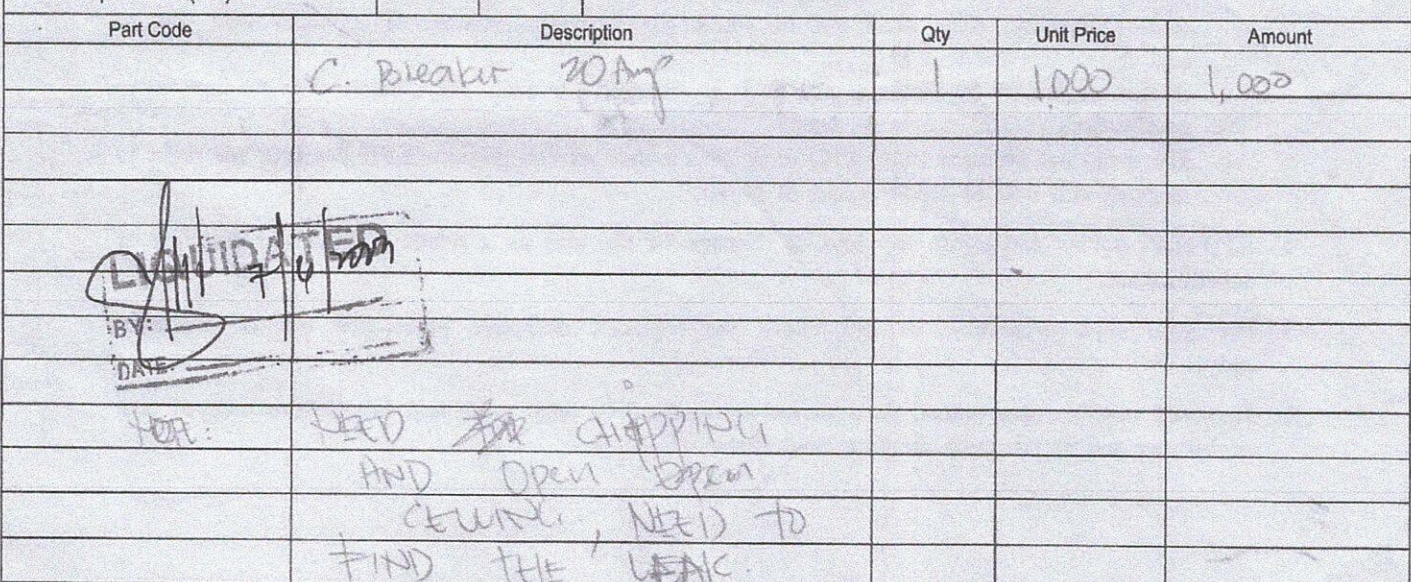 Part Code Description Qty Unit Price Amount
C. Breaker 20 Amp 1 1,000 1,000
LIQUIDATED
7 | 6 |
BY:
DATE
NOTE: NEED CHIPPING
AND OPEN
CEILING, NEED TO
FIND THE LEAK.